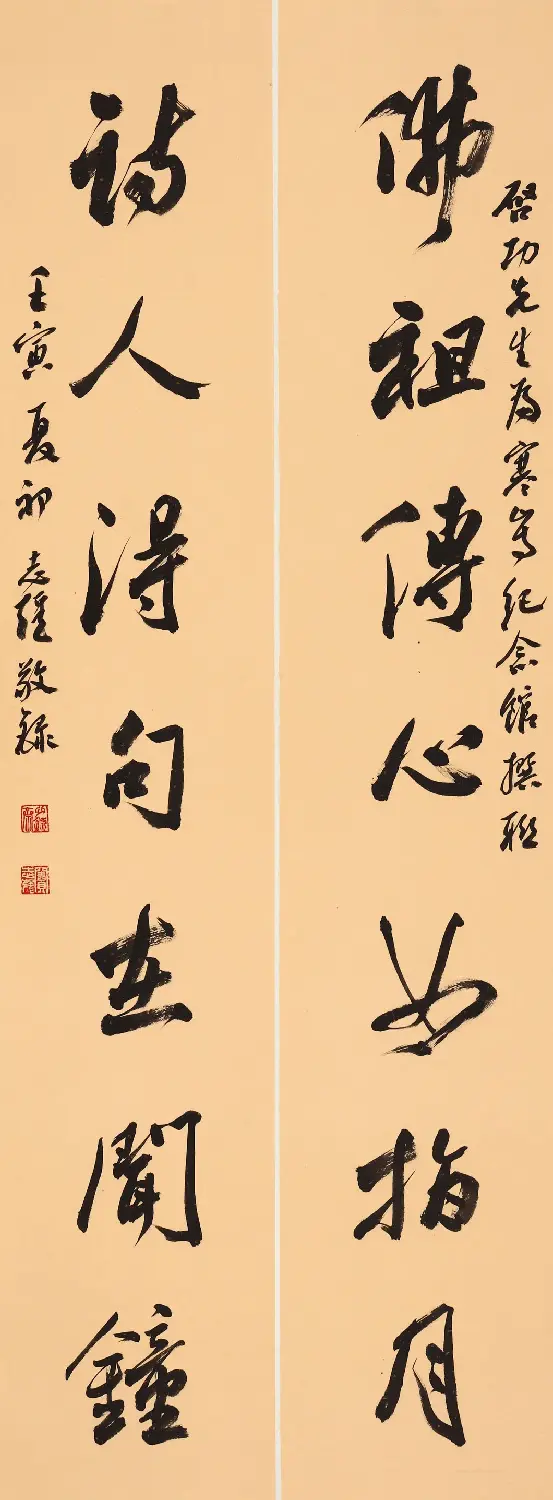 啓功先生为寒山寺纪念馆撰联
佛祖傳心如指月
詩人得句在聞鐘
壬寅夏初 志强敬録